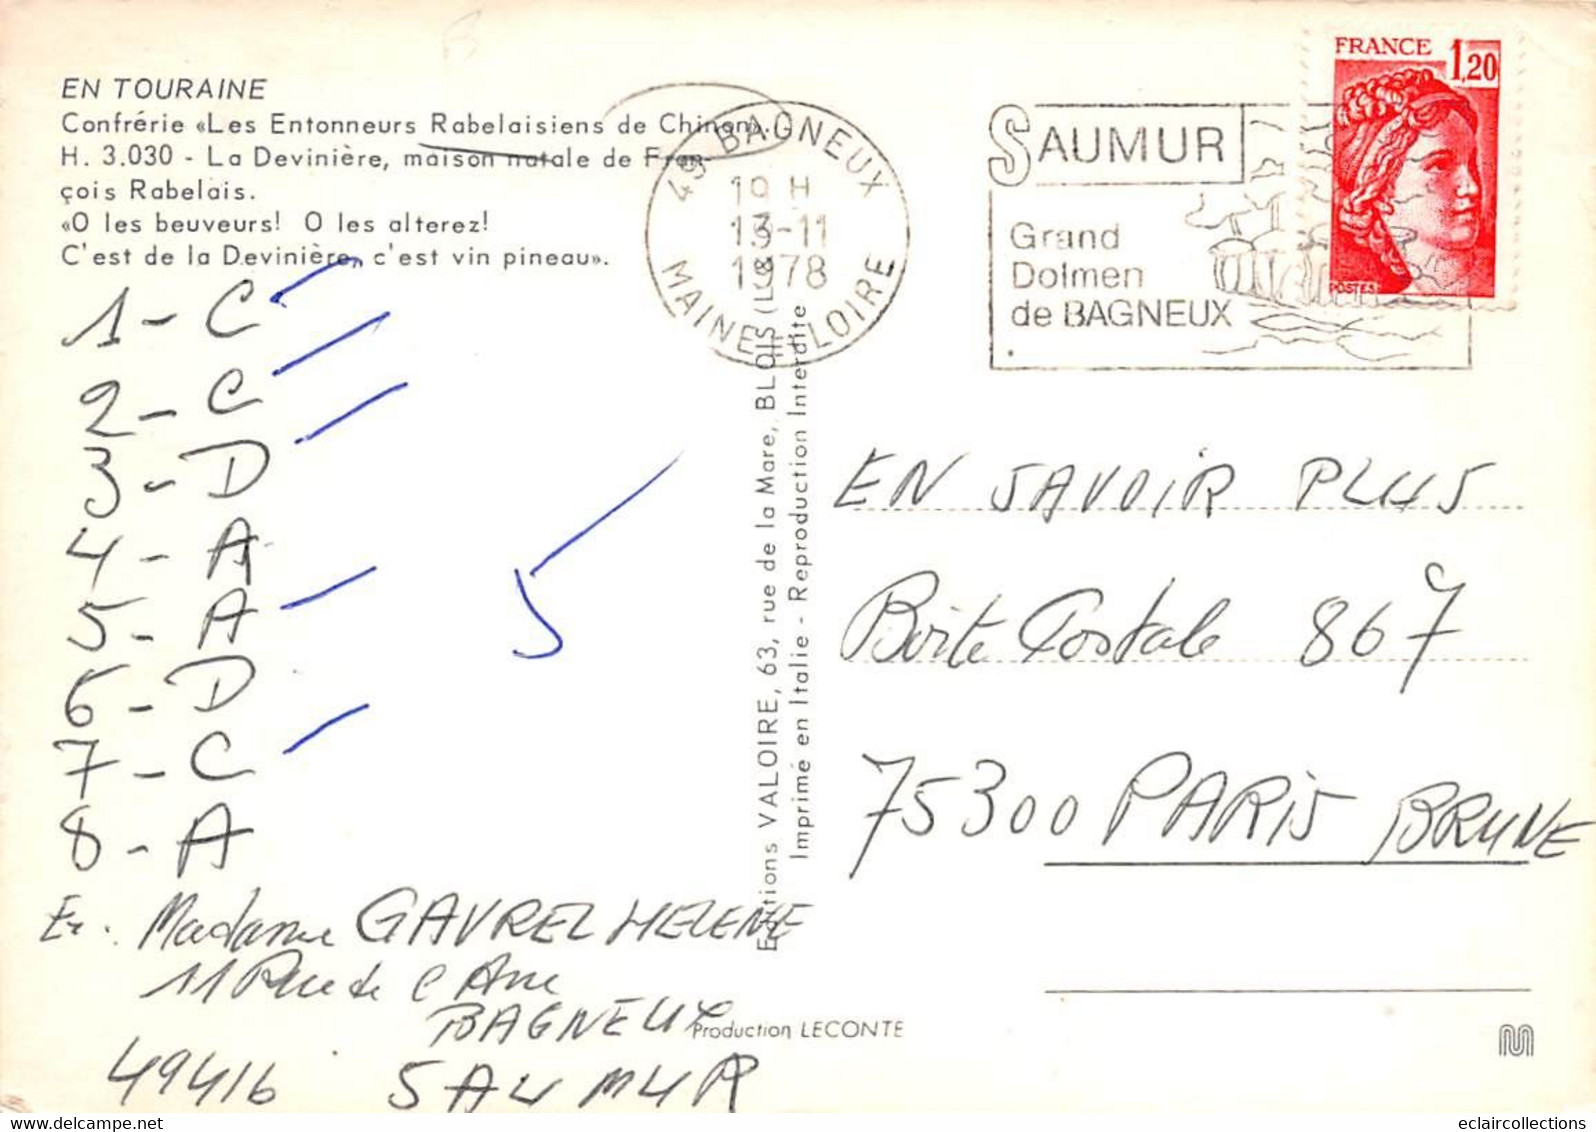 EN TOURAINE
Confrérie «Les Entonneurs Rabelaisiens de Chinon».
H. 3.030 - La Devinière, maison natale de Fran-
çois Rabelais.
«O les beuveurs! O les alterez!
C'est de la Devinière, c'est vin pineau».
1 - C
2 - C
3 - D
4 - A
5 - A
6 - D
7 - C
8 - A
5
Madame GAVREL HELENE
11 Rue de l'
BAGNEUX
49416 SAUMUR
Editions VALOIRE, 63, rue de la Mare, BLOIS (L.&
Imprimé en Italie - Reproduction Interdite
Production LECONTE
49 BAGNEUX
19 H
13-11
1978
MAINE ET LOIRE
SAUMUR
Grand
Dolmen
de BAGNEUX
FRANCE 1,20
POSTES
EN SAVOIR PLUS
Boite Postale 867
75300 PARIS BRUNE
eclaircollections